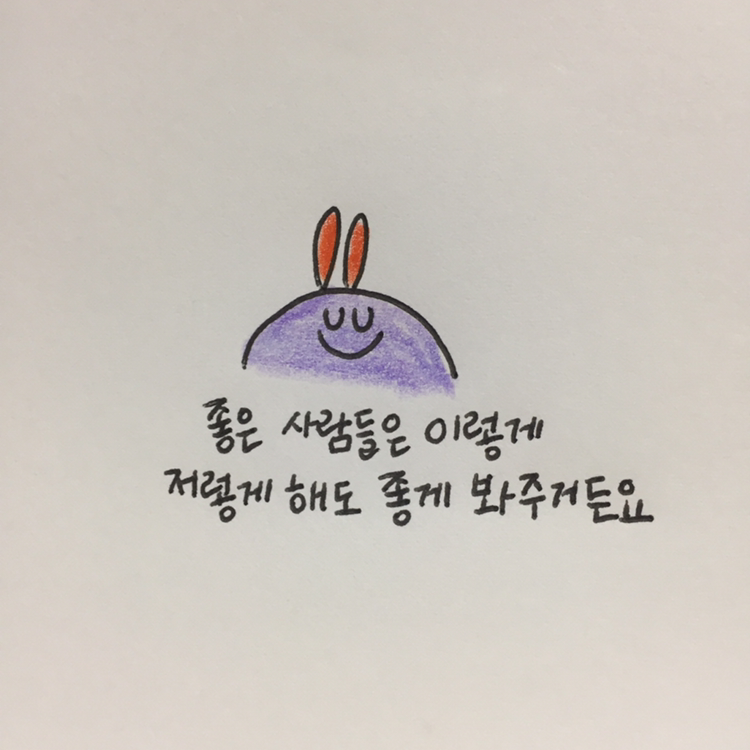 좋은 사람들은 이렇게
저렇게 해도 좋게 봐주거든요